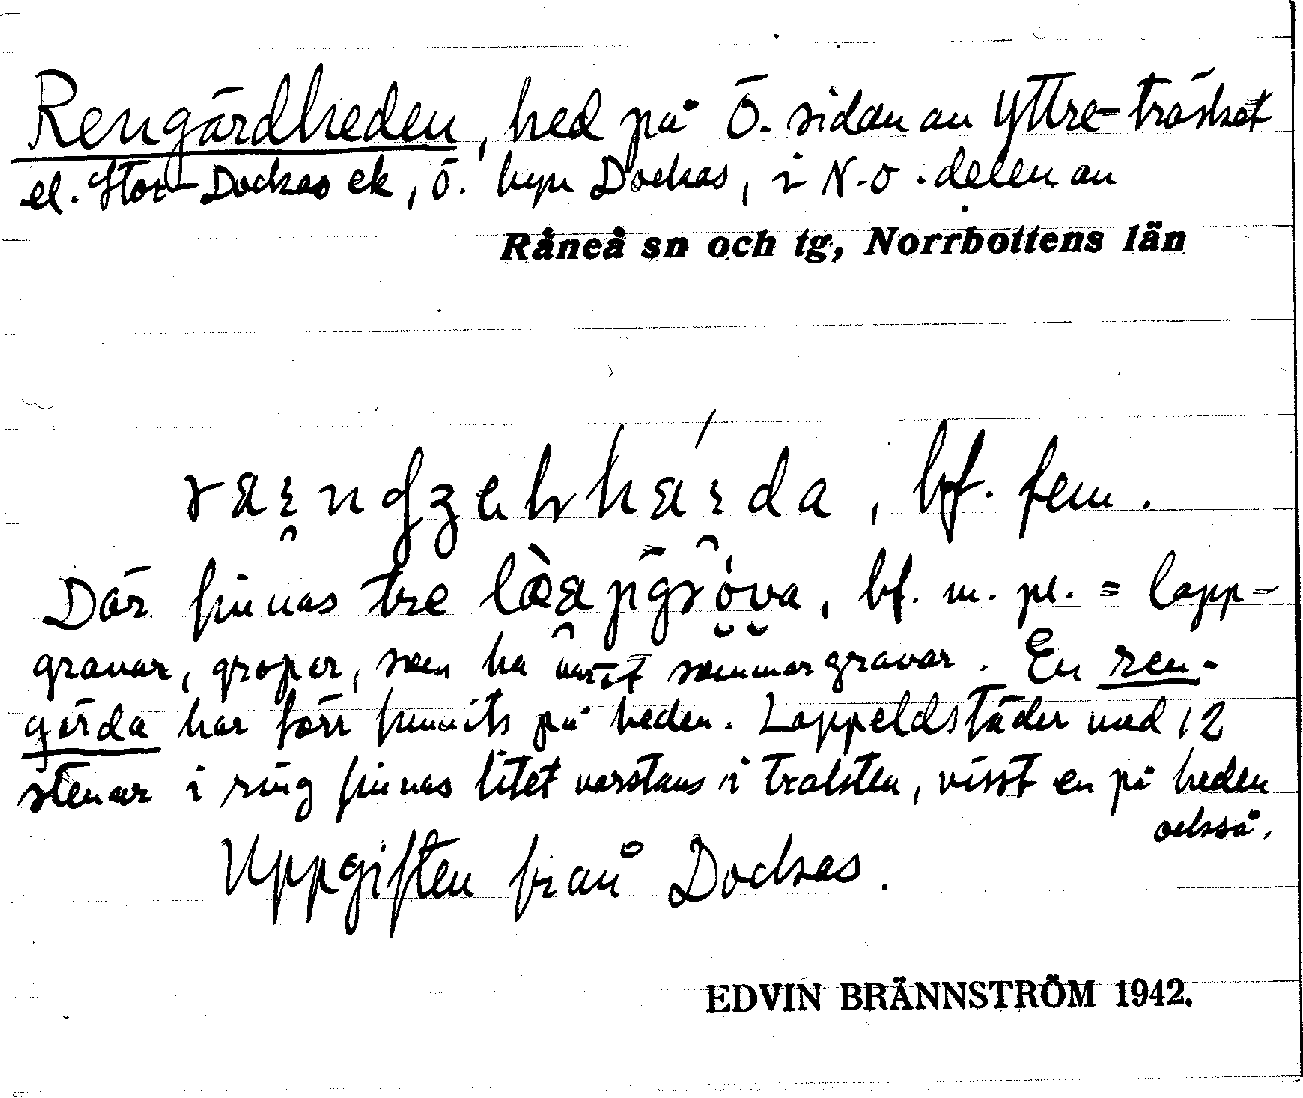 Rengärdheden, hed på Ö. sidan av Yttre-träsket
el. Stor-Dockas ek, ö. byn Dockas, i N.O. delen av
Råneå sn och tg, Norrbottens län
bf. fem.
Där finnas tre bf. m. pl. = lapp-
gravar, gropar, som ha varit sommargravar. En ren-
gärda har förr funnits på heden. Lappeldstäder med 12
stenar i ring finnas litet varstans i trakten, visst en på heden
också.
Uppgiften från Dockas.
EDVIN BRÄNNSTRÖM 1942.